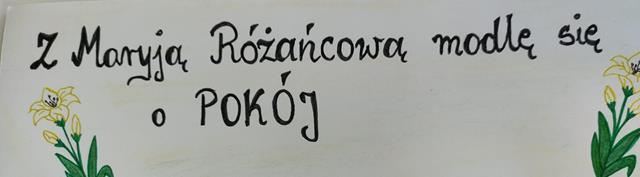 Z Maryją Różańcową modlę się
o POKÓJ